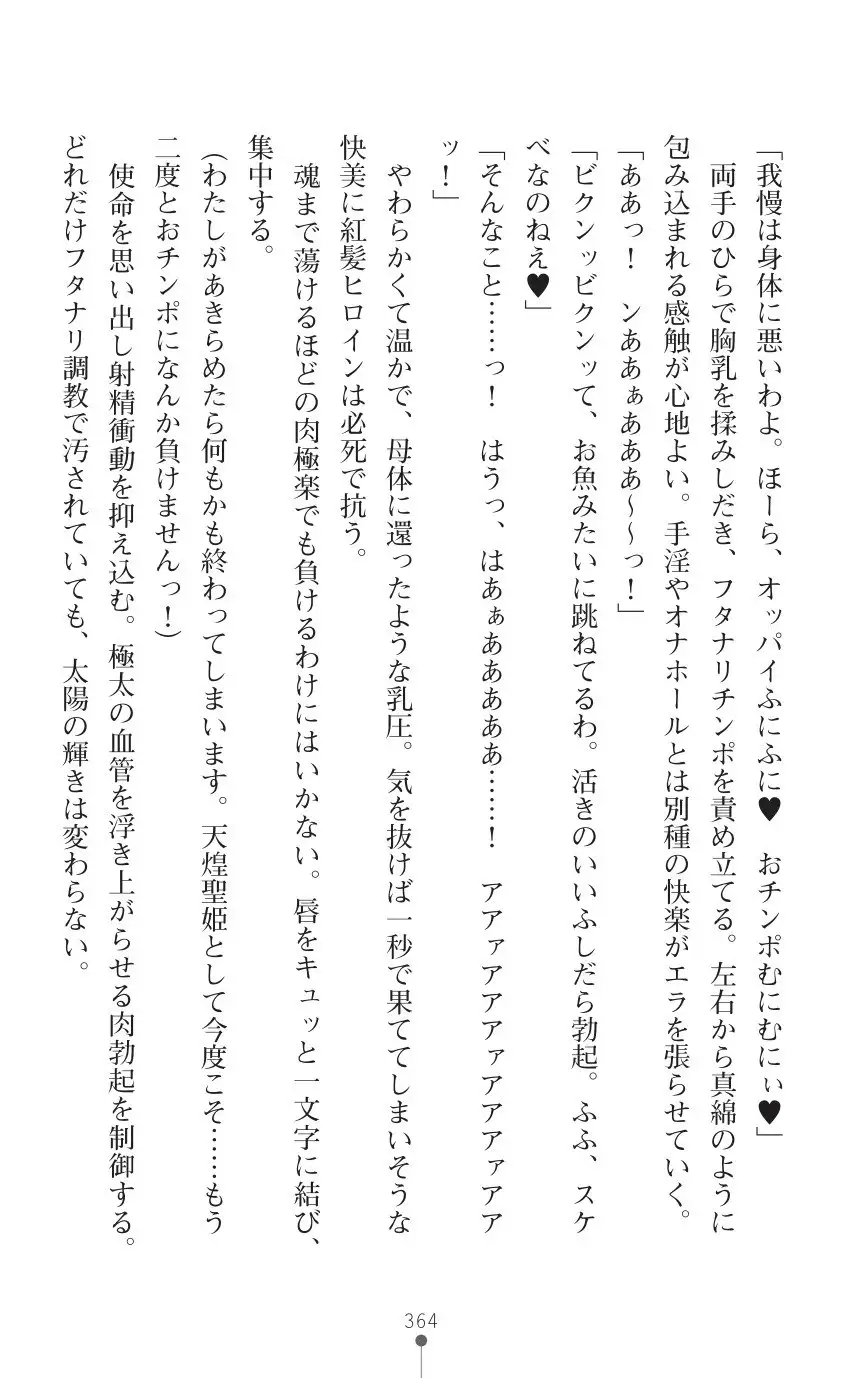 「我慢は身体に悪いわよ。ほーら、オッパイふにふに♥　おチンポむにむにぃ♥」
　両手のひらで胸乳を揉みしだき、フタナリチンポを責め立てる。左右から真綿のように
包み込まれる感触が心地よい。手淫やオナホールとは別種の快楽がエラを張らせていく。
「ああっ！　ンああぁあああ〜〜っ！」
「ビクンッビクンッて、お魚みたいに跳ねてるわ。活きのいいふしだら勃起。ふふ、スケ
べなのねえ♥」
「そんなこと……っ！　はうっ、はあぁあああああ……！　アアァアアアァアアアァアア
ッ！」
　やわらかくて温かで、母体に還ったような乳圧。気を抜けば一秒で果ててしまいそうな
快美に紅髪ヒロインは必死で抗う。
　魂まで蕩けるほどの肉極楽でも負けるわけにはいかない。唇をキュッと一文字に結び、
集中する。
（わたしがあきらめたら何もかも終わってしまいます。天煌聖姫として今度こそ……もう
二度とおチンポになんか負けませんっ！）
　使命を思い出し射精衝動を抑え込む。極太の血管を浮き上がらせる肉勃起を制御する。
どれだけフタナリ調教で汚されていても、太陽の輝きは変わらない。
364